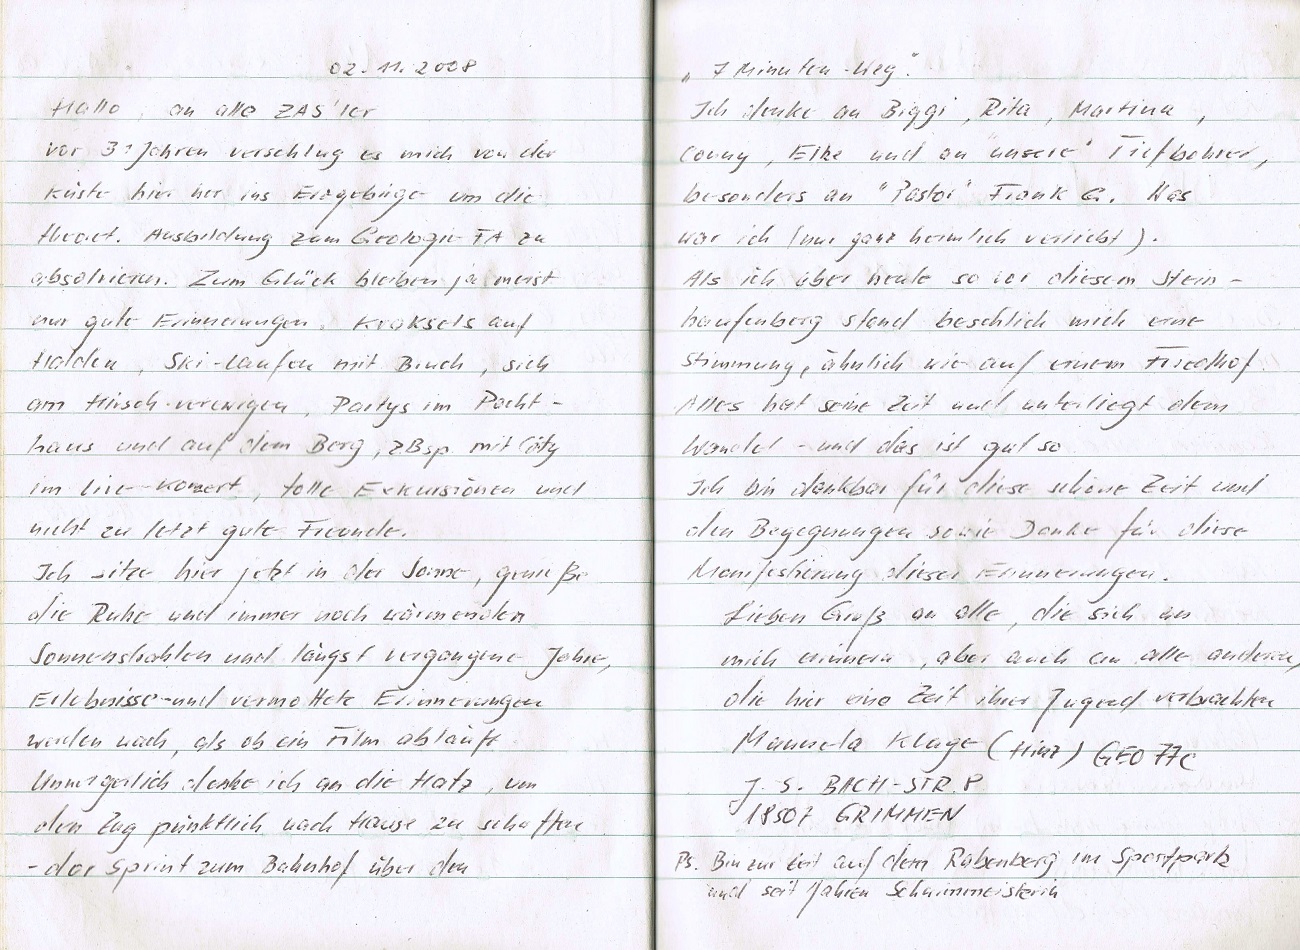 02.11.2008
Hallo, an alle ZAS'ler
vor 31 Jahren verschlug es mich von der
Küste hier her ins Erzgebirge um die
theoret. Ausbildung zum Geologie-FA zu
absolvieren. Zum Glück bleiben ja meist
nur gute Erinnerungen. Kraksels auf
Halden, Ski-laufen mit Bruch, sich
am Hirsch verewigen, Partys im Pacht-
haus und auf dem Berg, zBsp mit City
im live-Konzert, tolle Exkursionen und
nicht zu letzt gute Freunde.
Ich sitze hier jetzt in der Sonne, genieße
die Ruhe und immer noch wärmenden
Sonnenstrahlen und längst vergangene Jahre,
Erlebnisse und vermottete Erinnerungen
werden wach, als ob ein Film abläuft.
Unweigerlich denke ich an die Hatz, um
den Zug pünktlich nach Hause zu schaffen
- der Sprint zum Bahnhof über den
„7 Minuten-Weg".
Ich denke an Biggi, Rita, Martina,
Conny, Elke und an "unsere" Tiefbohrer,
besonders an "Pastor" Frank G. Was
war ich (nur ganz heimlich verliebt).
Als ich aber heute so vor diesem Stein-
haufenberg stand beschlich mich eine
Stimmung, ähnlich wie auf einem Friedhof.
Alles hat seine Zeit und unterliegt dem
Wandel - und das ist gut so
Ich bin dankbar für diese schöne Zeit und
den Begegnungen sowie Danke für diese
Manifestierung dieser Erinnerungen.
Lieben Gruß an alle, die sich an
mich erinnern, aber auch an alle anderen,
die hier eine Zeit ihrer Jugend verbrachten
Manuela Klage (Hinz) GEO 77c
J.-S. BACH-STR. 8
18507 GRIMMEN
Ps. Bin zur Zeit auf dem Rabenberg im Sportpark
und seit Jahren Schwimmeisterin